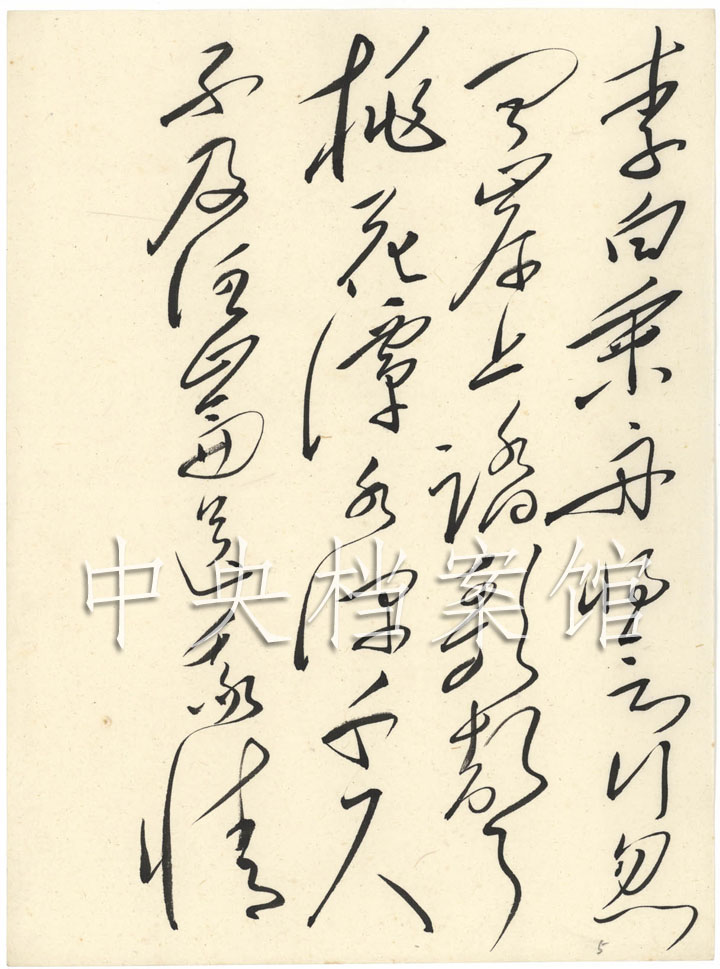 李白乘舟將欲行忽
聞岸上踏歌聲
桃花潭水深千尺
不及汪倫送我情
中央档案馆
5